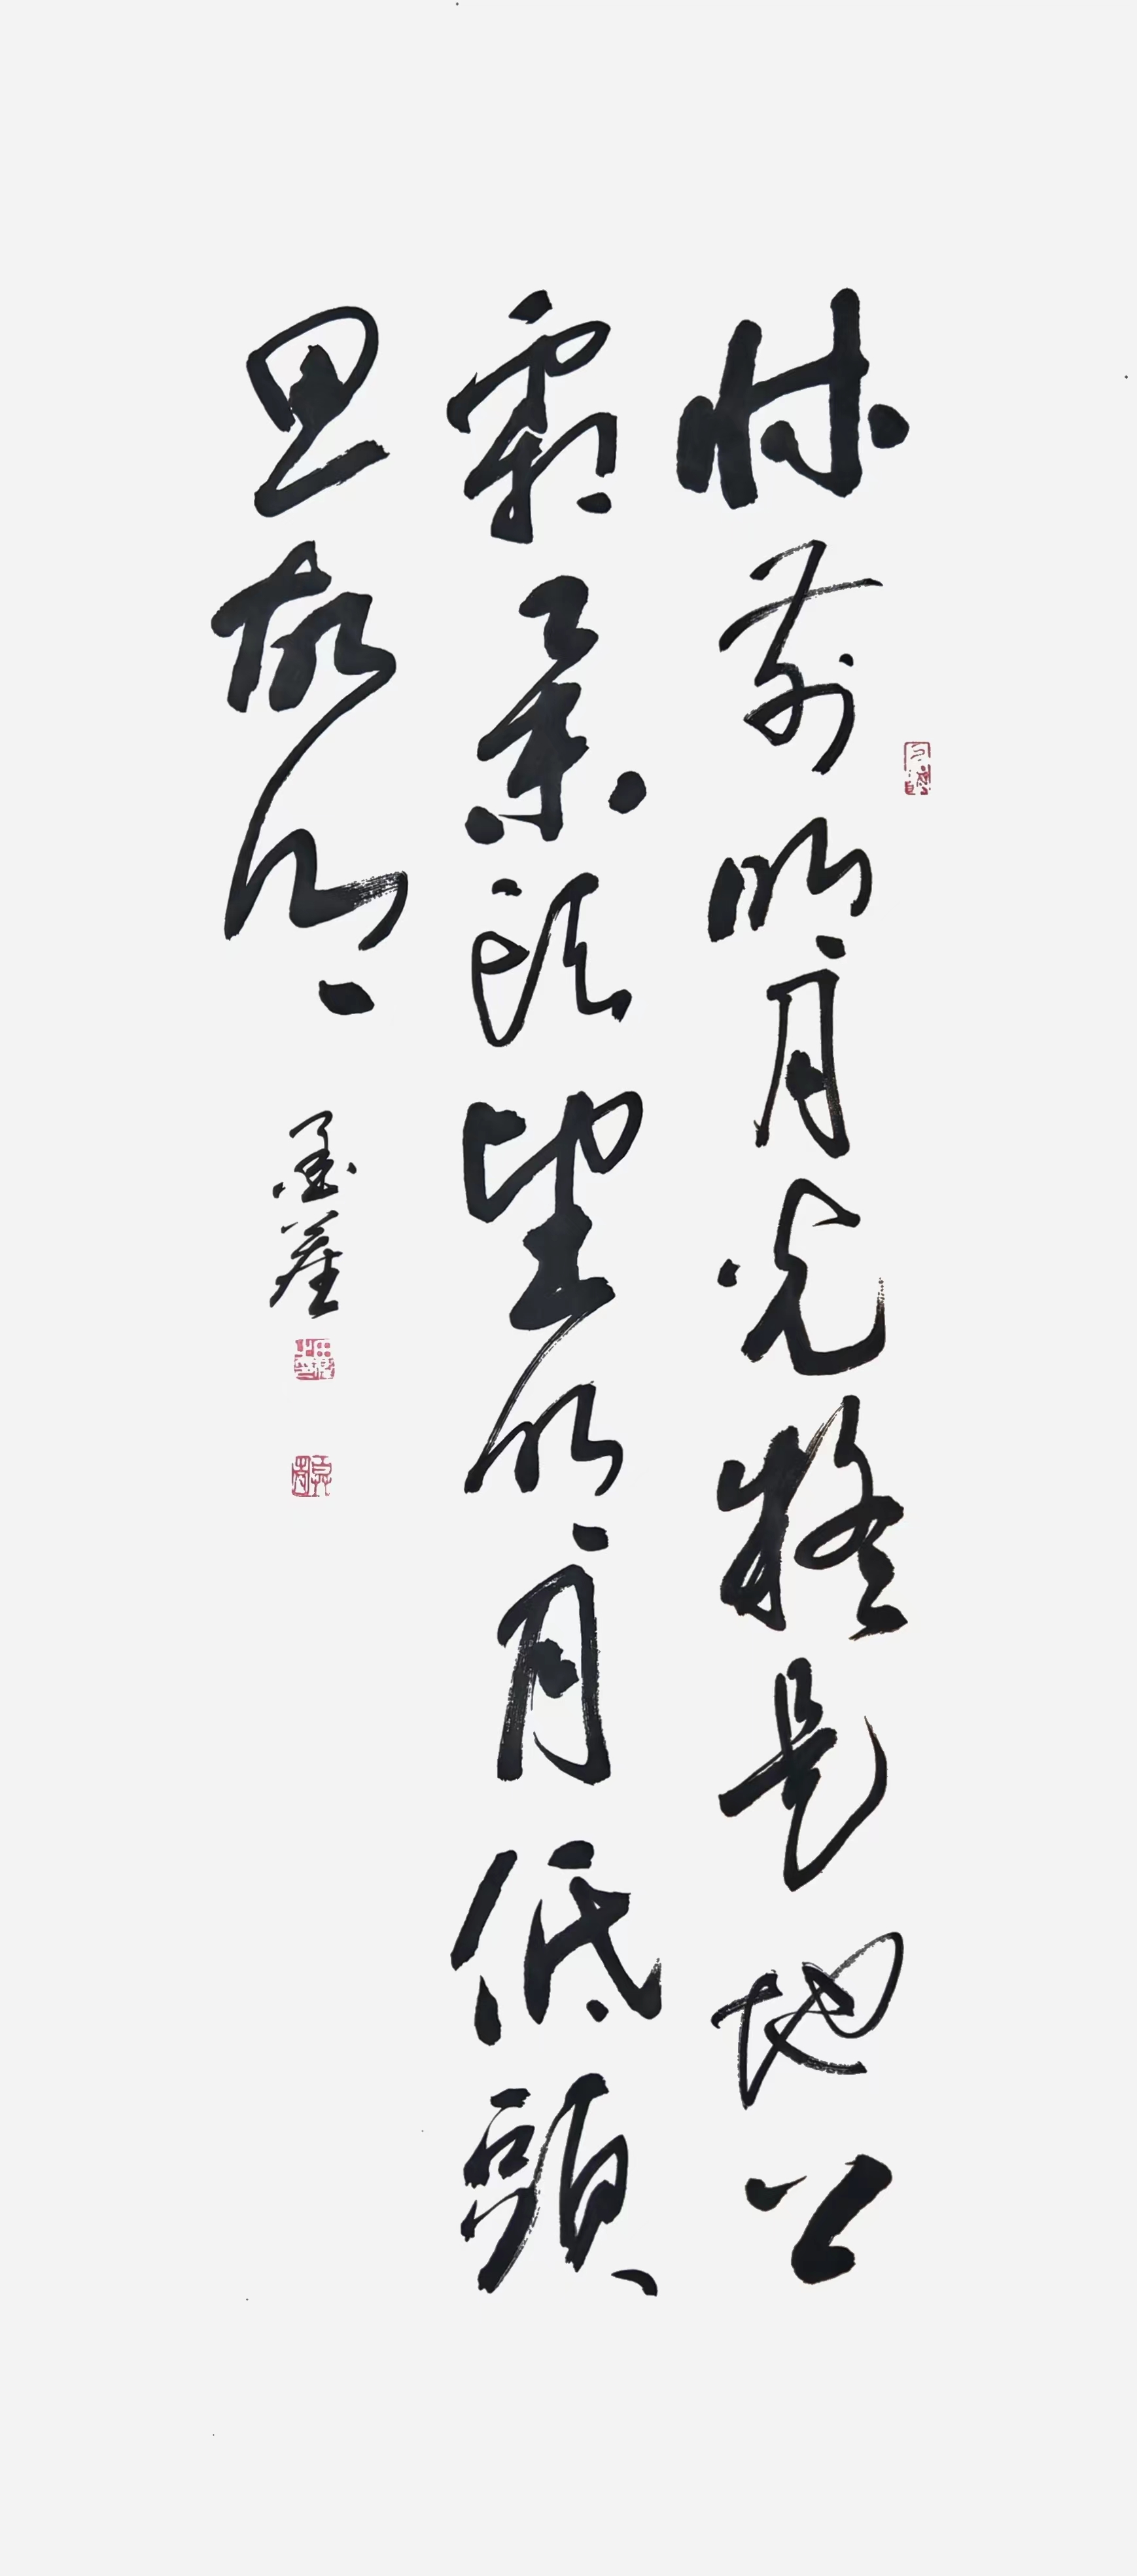 牀前明月光疑是地上
霜舉頭望明月低頭
思故鄉
墨